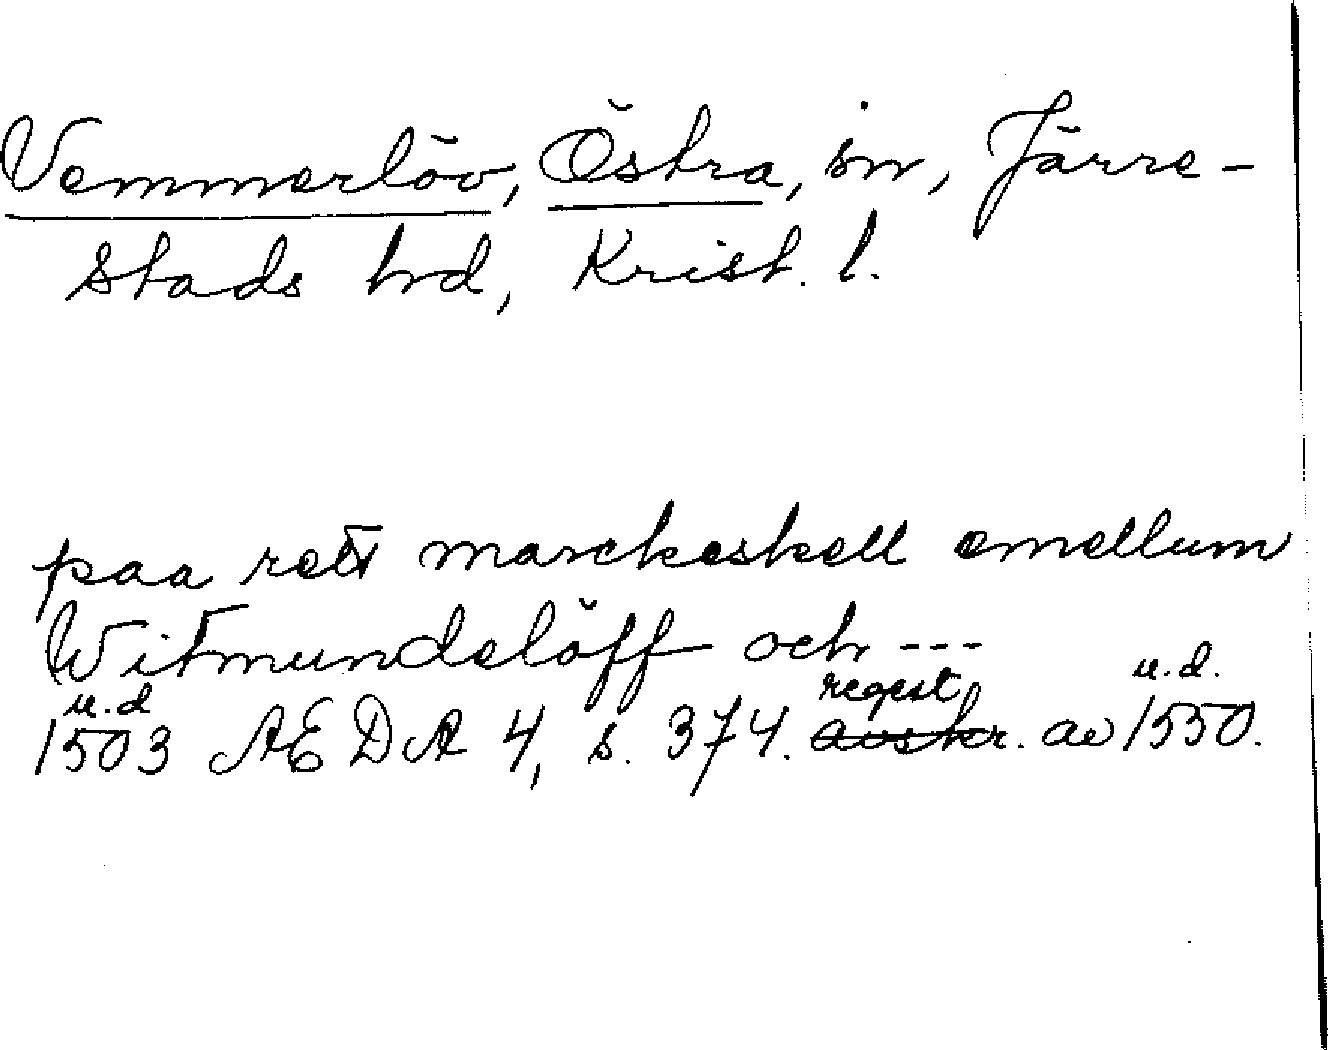 Vemmerlöv, Östra, sn, Järre-
stads hd, Krist. l.
paa rett marckeskell emellum
Witmundslöff och ---
u.d regest u.d.
1503 AEDA 4, s. 374. avskr. av 1550.